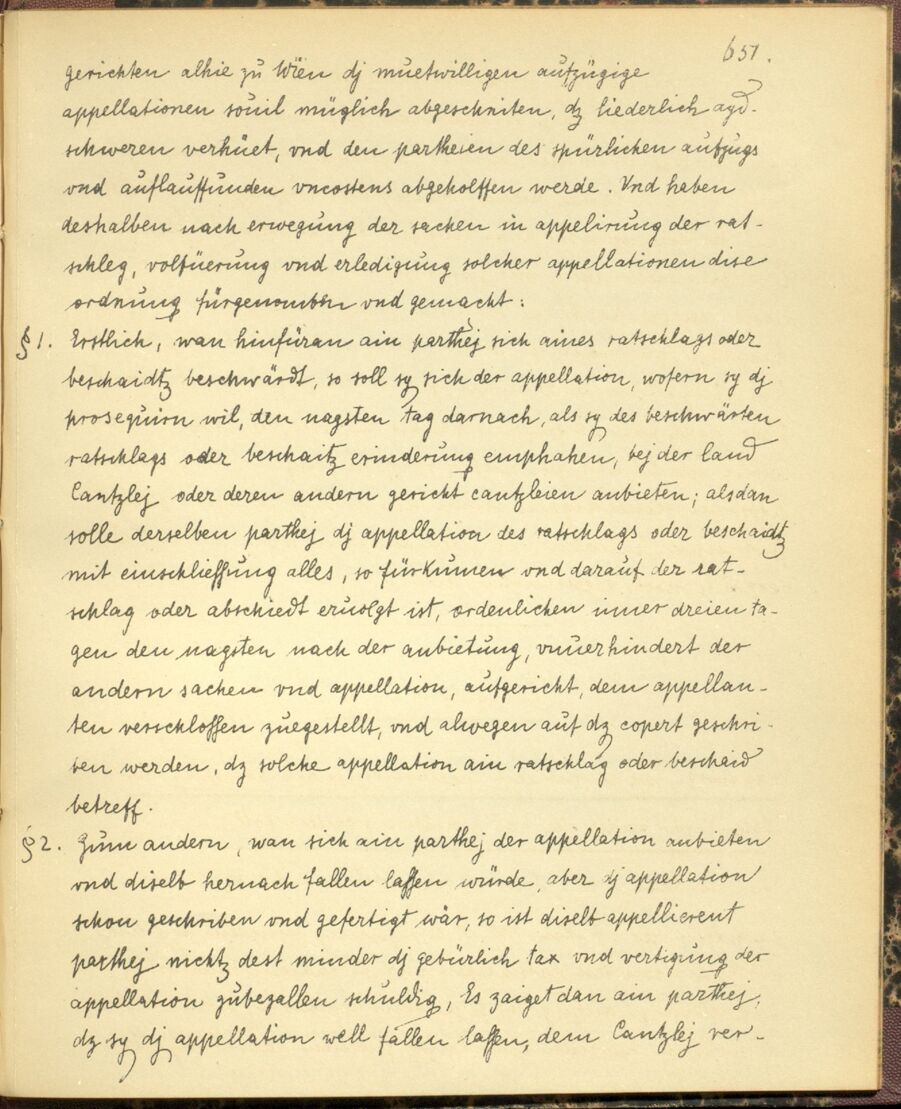 651.
gerichten alhie zu Wien dj muetwilligen aufzügige
appellationen souil müglich abgeschniten, dz liederlich ayd-
schweren verhüet, vnd den partheien des spürlichen aufzugs
vnd auflauffunden vncostens abgeholffen werde. Vnd haben
deshalben nach erwegung der sachen in appelirung der rat-
schleg, volfüerung vnd erledigung solcher appellationen dise
ordnung fürgenomben vnd gemacht:
§ 1. Erstlich, wan hinfüran ain parthej sich aines ratschlags oder
beschaidtz beschwärdt, so soll sy sich der appellation, wofern sy dj
prosequirn wil, den nagsten tag darnach, als sy des beschwärten
ratschlags oder beschaitz erinderung emphahen, bej der land
Cantzlej oder deren andern gericht cantzleien anbieten; alsdan
solle derselben parthej dj appellation des ratschlags oder beschaidtz
mit einschlieffung alles, so fürkumen vnd darauf der rat-
schlag oder abschiedt eruolgt ist, ordenlichen inner dreien ta-
gen den nagsten nach der anbietung, vnuerhindert der
andern sachen vnd appellation, aufgericht, dem appellan-
ten verschlossen zuegestellt, vnd alwegen auf dz copert geschri-
ben werden, dz solche appellation ain ratschlag oder beschaid
betreff.
§ 2. Zum andern, wan sich ain parthej der appellation anbieten
vnd diselb hernach fallen lassen würde, aber dj appellation
schon geschriben vnd gefertigt wär, so ist diselb appellierent
parthej nichtz dest minder dj gebürlich tax vnd vertigung der
appellation zubezallen schuldig, Es zaiget dan ain parthej,
dz sy dj appellation well fallen lassen, dem Cantzlej ver-